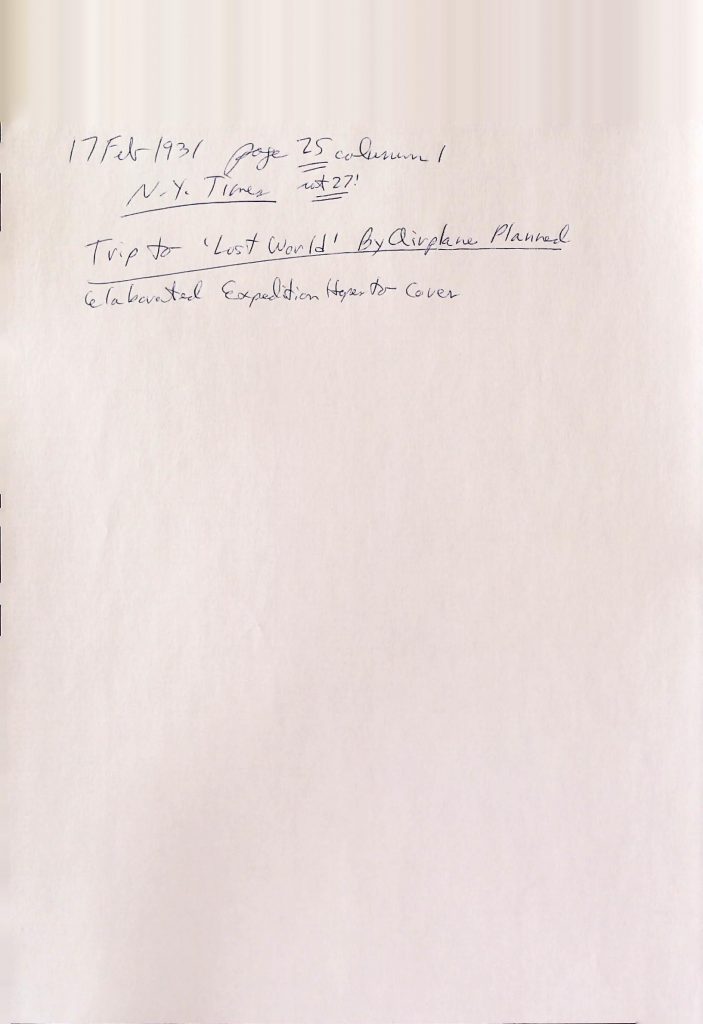 17 Feb 1931 page 25 column 1
N.Y. Times not 27!
Trip to 'Lost World' By Airplane Planned
Elaborated Expedition Hopes to Cover